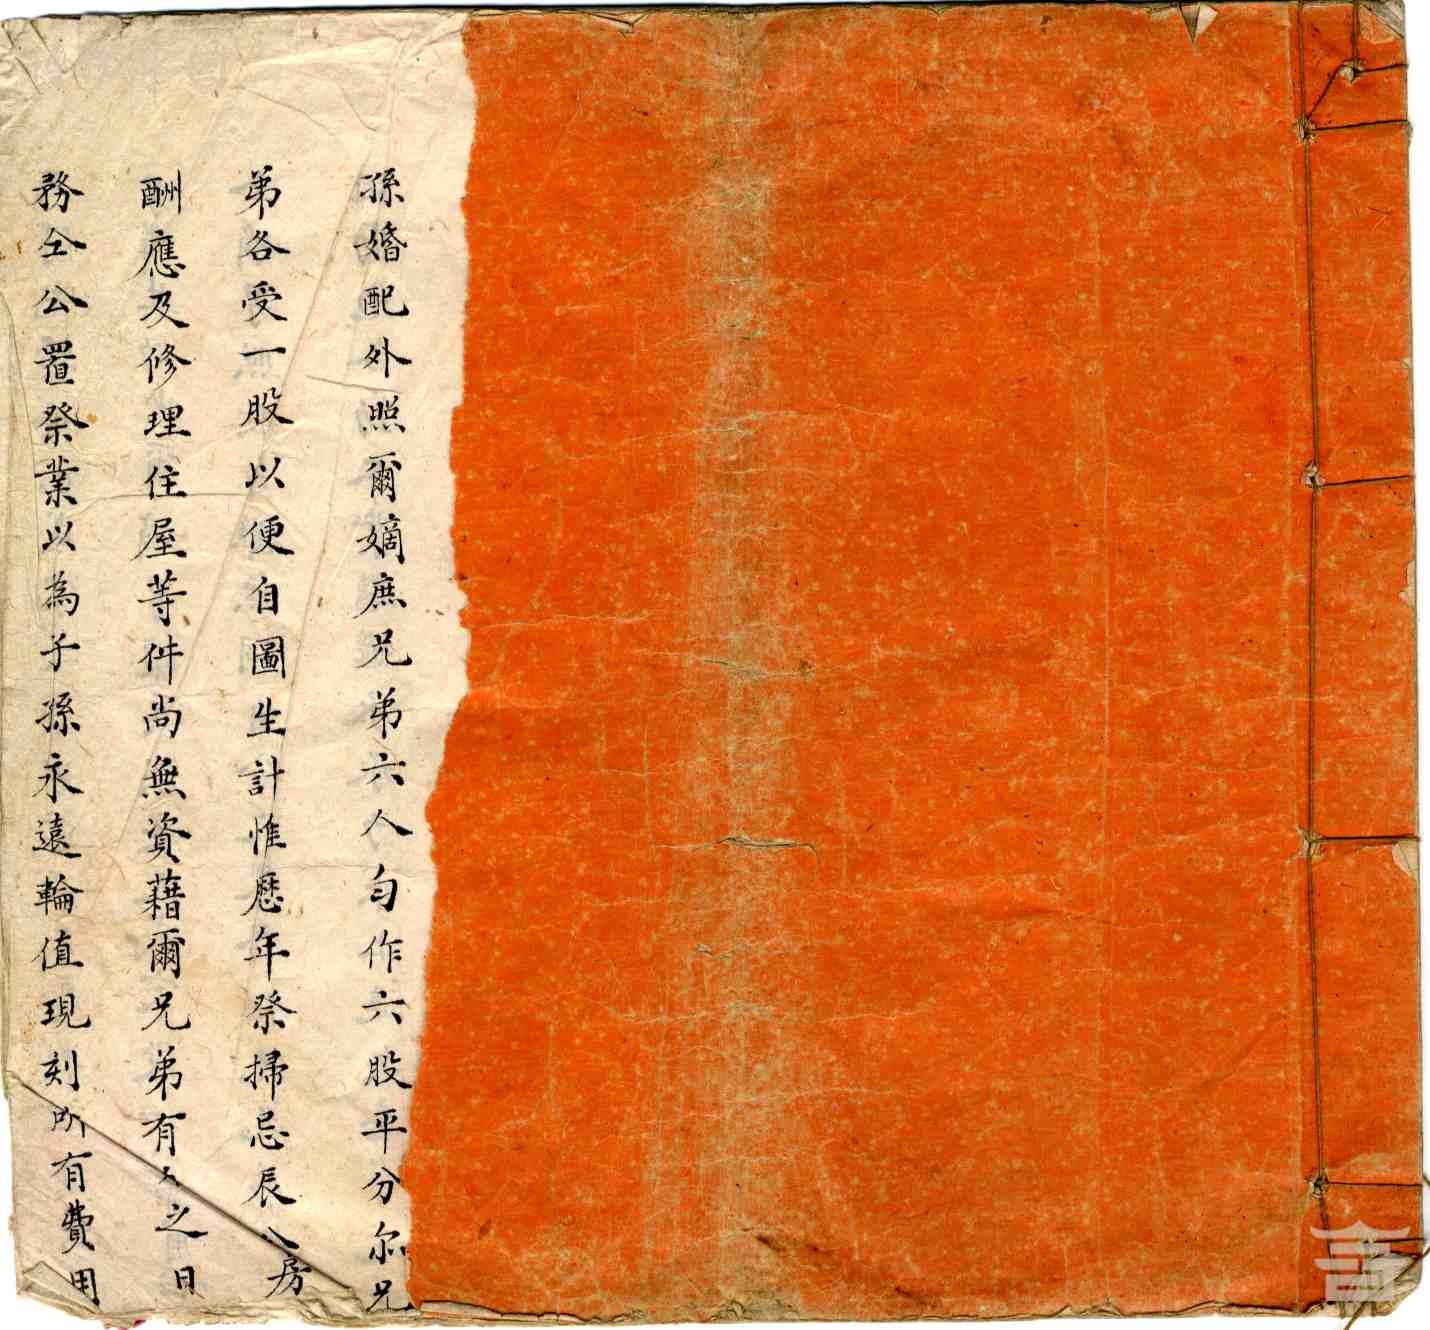 孫婚配外照爾嫡庶兄弟六人勻作六股平分尔兄
弟各受一股以便自圖生計惟歷年祭掃忌辰八房
酬應及修理住屋等件尚無資藉爾兄弟有力之日
務仝公置祭業以為子孫永遠輪值現刻所有費用